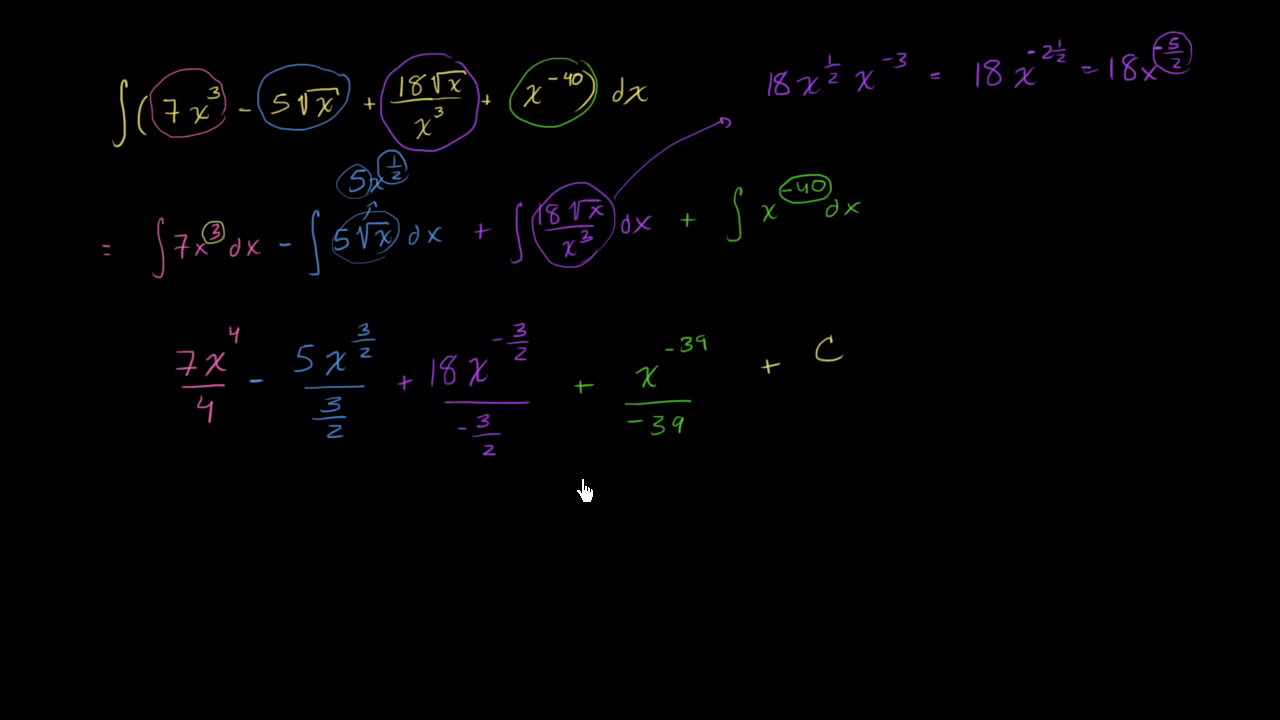 ∫(7x³ - 5√x + 18√x/x³ + x⁻⁴⁰) dx
18x^(1/2) x⁻³ = 18x^(-2 1/2) = 18x^(-5/2)
5x^(1/2)
= ∫7x³dx - ∫5√x dx + ∫18√x/x³ dx + ∫x⁻⁴⁰dx
7x⁴/4 - 5x^(3/2)/(3/2) + 18x^(-3/2)/(-3/2) + x⁻³⁹/-39 + C